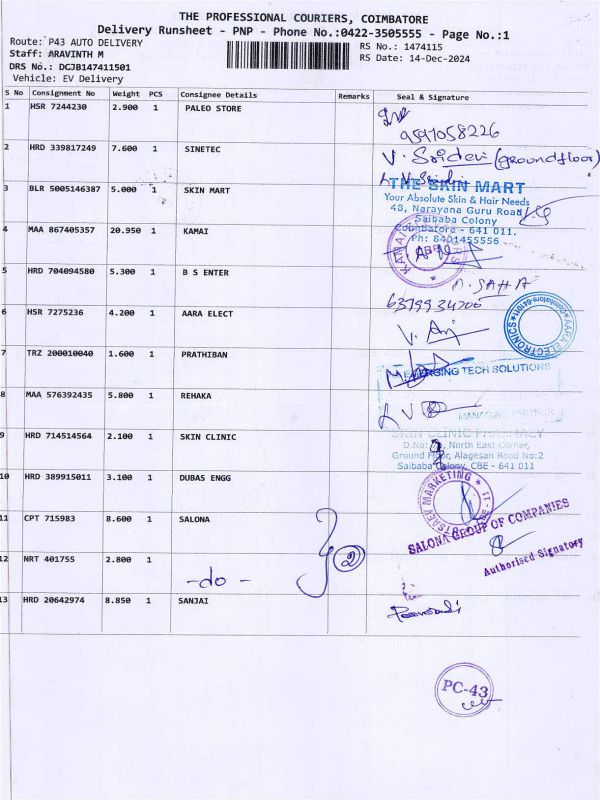 THE PROFESSIONAL COURIERS, COIMBATORE
Delivery Runsheet - PNP - Phone No.:0422-3505555 - Page No.:1
Route: P43 AUTO DELIVERY
Staff: ARAVINTH M
DRS No.: DCJB147411501
Vehicle: EV Delivery
RS No.: 1474115
RS Date: 14-Dec-2024
S No Consignment No Weight PCS Consignee Details Remarks Seal & Signature
1 HSR 7244230 2.900 1 PALEO STORE
9597058226
2 HRD 339817249 7.600 1 SINETEC V. Sridevi (groundfloor)
3 BLR 5005146387 5.000 1 SKIN MART
THE SKIN MART
Your Absolute Skin & Hair Needs
48, Narayana Guru Road
Saibaba Colony
Coimbatore - 641 011.
Ph: 8401455556
4 MAA 867405357 20.950 1 KAMAI
CBE
5 HRD 704094580 5.300 1 B S ENTER
6379934200
6 HSR 7275236 4.200 1 AARA ELECT
AARA ELECTRONICS
7 TRZ 200010040 1.600 1 PRATHIBAN
EMERGING TECH SOLUTIONS
MANAGING PARTNER
8 MAA 576392435 5.800 1 REHAKA
9 HRD 714514564 2.100 1 SKIN CLINIC
SKIN CLINIC PHARMACY
D.No: North East Corner,
Ground Floor, Alagesan Road No:2
Saibaba Colony, CBE - 641 011
10 HRD 389915011 3.100 1 DUBAS ENGG
MARKETING
11 CPT 715983 8.600 1 SALONA
SALONA GROUP OF COMPANIES
Authorised Signatory
12 NRT 401755 2.800 1
-do-
2
13 HRD 20642974 8.850 1 SANJAI
PC-43